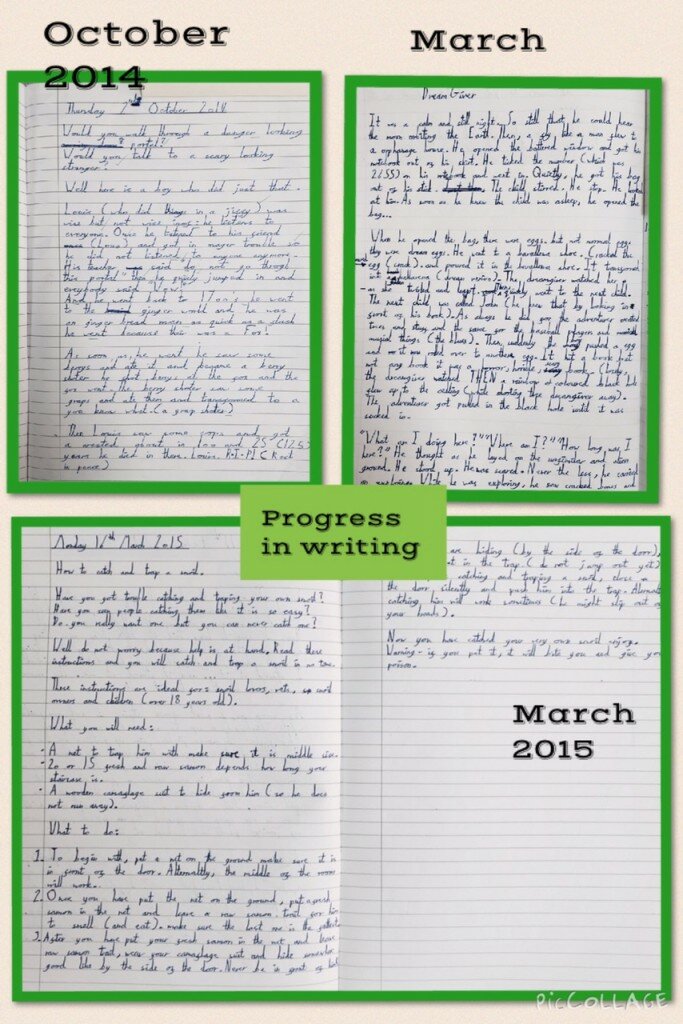 October
2014
March
Thursday 2nd October 2014
Would you walk through a danger looking
portal?
Would you talk to a scary looking
stranger?
Well here is a boy who did just that.
Louis (who did things in a jiffy) was
wise but not wise : he listens to
everyone. Once he listened to his friend
(Louis) and got in mager trouble so
he did not listened to anyone anymore.
His teacher said do not go through
this portal" then he jumped in and
everybody said "Wow".
And he went back to 1700s he went
to the ginger world and he was
an ginger bread man as quick as a
he went because their was a Fox!
As soon as he went he saw some
berrys and ate it and became a berry
shoter he shot berrys at the fox and the
fox went the berry shoter saw some
graps and ate them and transformed to a
you know what-(a grap shoter)
Then Louis saw some cops and got
a arested about in 100 and 25 (125)
years he died in there. Louis R-I-P (Rest
in peace)
Dream Giver
It was a calm and still night. So still that he could hear
the moon orbiting the Earth. Then, a guy like a man flew to
a orphanage house. He opened the battered window and got his
notebook out of his suit. He ticked the number (which was
2655) on his notebook and went in. Quietly, he got his bag
out of his suit. The child stirred. He stop. He looked
at him. As soon as he knew the child was asleep, he opened the
bag...
When he opened the bag, there were eggs. but not normal egg.
they were dream eggs. He went to a shoe. Cracked the
egg (crack) and poured it in the shoe. It transformed
into The dreamgiver watched her
- as she ticked and went to the next child.
The next child was called John (he knew that by looking in
front of his book). As always he did for the adventurer
trees and stars and the same for the baseball players and
musical things (the blues). Then suddenly the pushed a egg
and so it rolled over to another egg. It hit a book but
not any book it was a terror, horrible, book. (Lucky,
the dreamgiver watched) THEN a rainbow of coloured black hole
flew up to the ceiling (while shooting the dreamgiver away).
The adventurer got pulled in the black hole until it was
sucked in.
"What am I doing here?" "Where am I?" "How long was I
here?" He thought as he layed on the unfimiliar and alien
ground. He stood up. He was scared. Never the less, he carried
on exploring. While he was exploring, he saw cracked bones and
Progress
in writing
Monday 16th March 2015
How to catch and trap a snail.
Have you got trouble catching and traping your own snail?
Have you can people catching them like it is so easy?
Do you really want one but you can never catch one?
Well do not worry because help is at hand. Read these
instructions and you will catch and trap a snail in no time.
These instructions are ideal for: snail lovers, vets, snail
owners and children (over 18 years old).
What you will need:
- A net to trap him with make sure it is middle size.
- 20 or 15 fresh and raw samon depends how long your
staircase is.
- A wooden camaflage suit to hide from him (so he does
not run away).
What to do:
1. To begin with, put a net on the ground make sure it is
in front of the door. Alternatitly, the middle of the room
will work.
2. Once you have put the net on the ground, put a fresh
samon in the net and leave a raw samon trail for him
to smell (and eat). make sure the last one is the
3. After you have put your fresh samon in the net and leave
raw samon trail, wear your camaflage suit and hide somewhere
good like by the side of the door. Never be in front of
are hiding (by the side of the door),
in the trap. (do not jump out yet)
catching and traping a snail, close
the door silently and push him into the trap.
catching him will work sometimes (he might slip out of
your hands).
Now you have catched your very own snail enjoy.
Warning - if you pet it, it will bite you and give you
poison.
March
2015
PicCollage